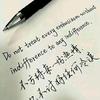 Do not treat every enthusiasm without
indifference to any indifference.
不要辜负每一份热情
不讨好任何冷漠